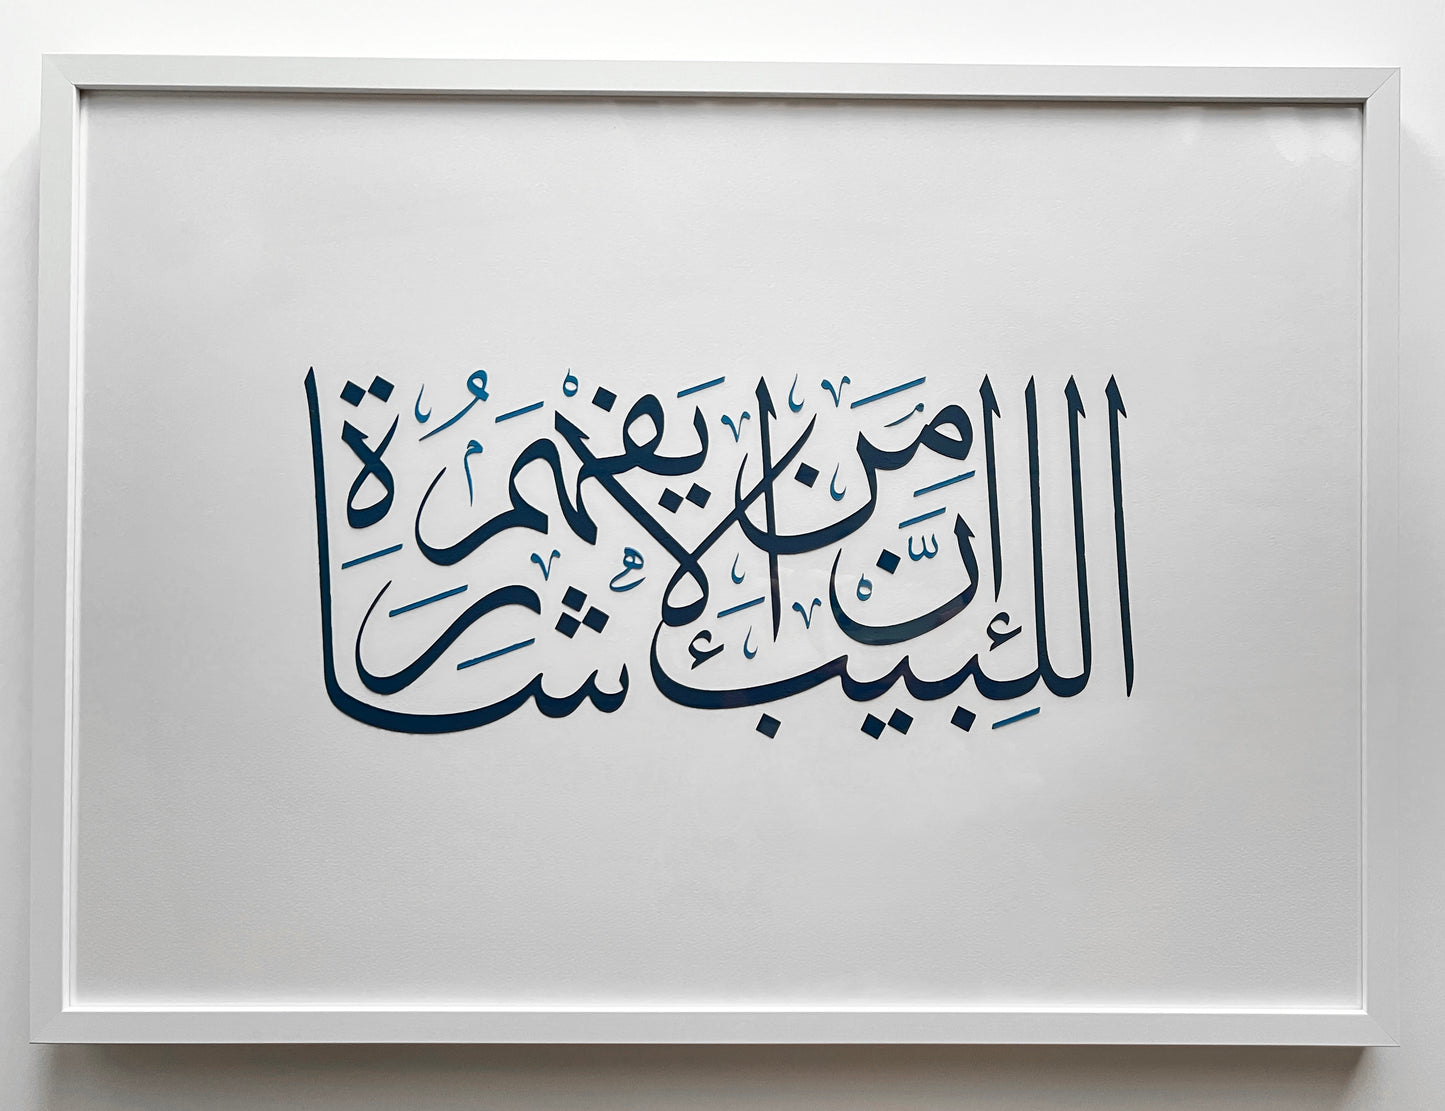 إنّ اللبيب من الإشارة يفهم